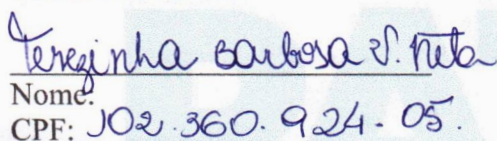 Terezinha Barbosa V. Neta
Nome:
CPF: 102.360.924-05.